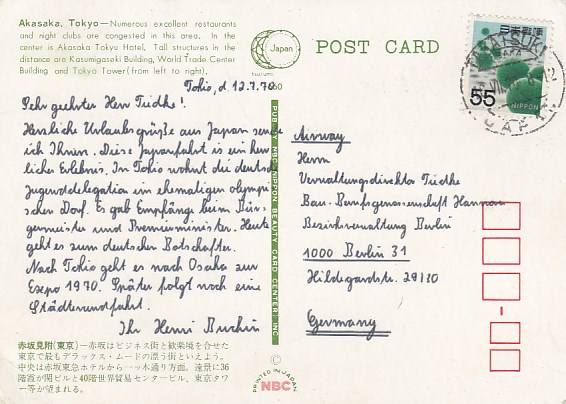 Akasaka, Tokyo—Numerous excellent restaurants
and night clubs are congested in this area. In the
center is Akasaka Tokyu Hotel. Tall structures in the
distance are Kasumigaseki Building, World Trade Center
Building and Tokyo Tower (from left to right).
Japan
tsurumi
POST CARD
日本郵便
55
NIPPON
JAPAN
Tokio, d. 12.7.70
Sehr geehrter Herr Tiedke!
Herzliche Urlaubsgrüße aus Japan sende
ich Ihnen. Diese Japanfahrt ist ein herr
liches Erlebnis. In Tokio wohnt die deutsche
Jugenddelegation im ehemaligen olympi
schen Dorf. Es gab Empfänge beim Bür-
germeister und Premierminister. Heute
geht es zum deutschen Botschafter.
Nach Tokio geht es nach Osaka zur
Expo 1970. Später folgt noch eine
Städterundfahrt.
Ihr Henri
PUB. BY NBC-NIPPON BEAUTY CARD CENTER INC.
Airway
Herrn
Verwaltungsdirektor Tiedke
Bau-Berufsgenossenschaft Hannover
Bezirksverwaltung Berlin
1000 Berlin 31
Hildegardstr. 29/30
Germany
赤坂見附(東京)—赤坂はビジネス街と歓楽境を合せた
東京で最もデラックス・ムードの漂う街といえよう。
中央は赤坂東急ホテルから一ッ木通り方面。遠景に36
階霞が関ビルと40階世界貿易センタービル、東京タワ
ー等が望まれる。
©
PRINTED IN JAPAN
NBC